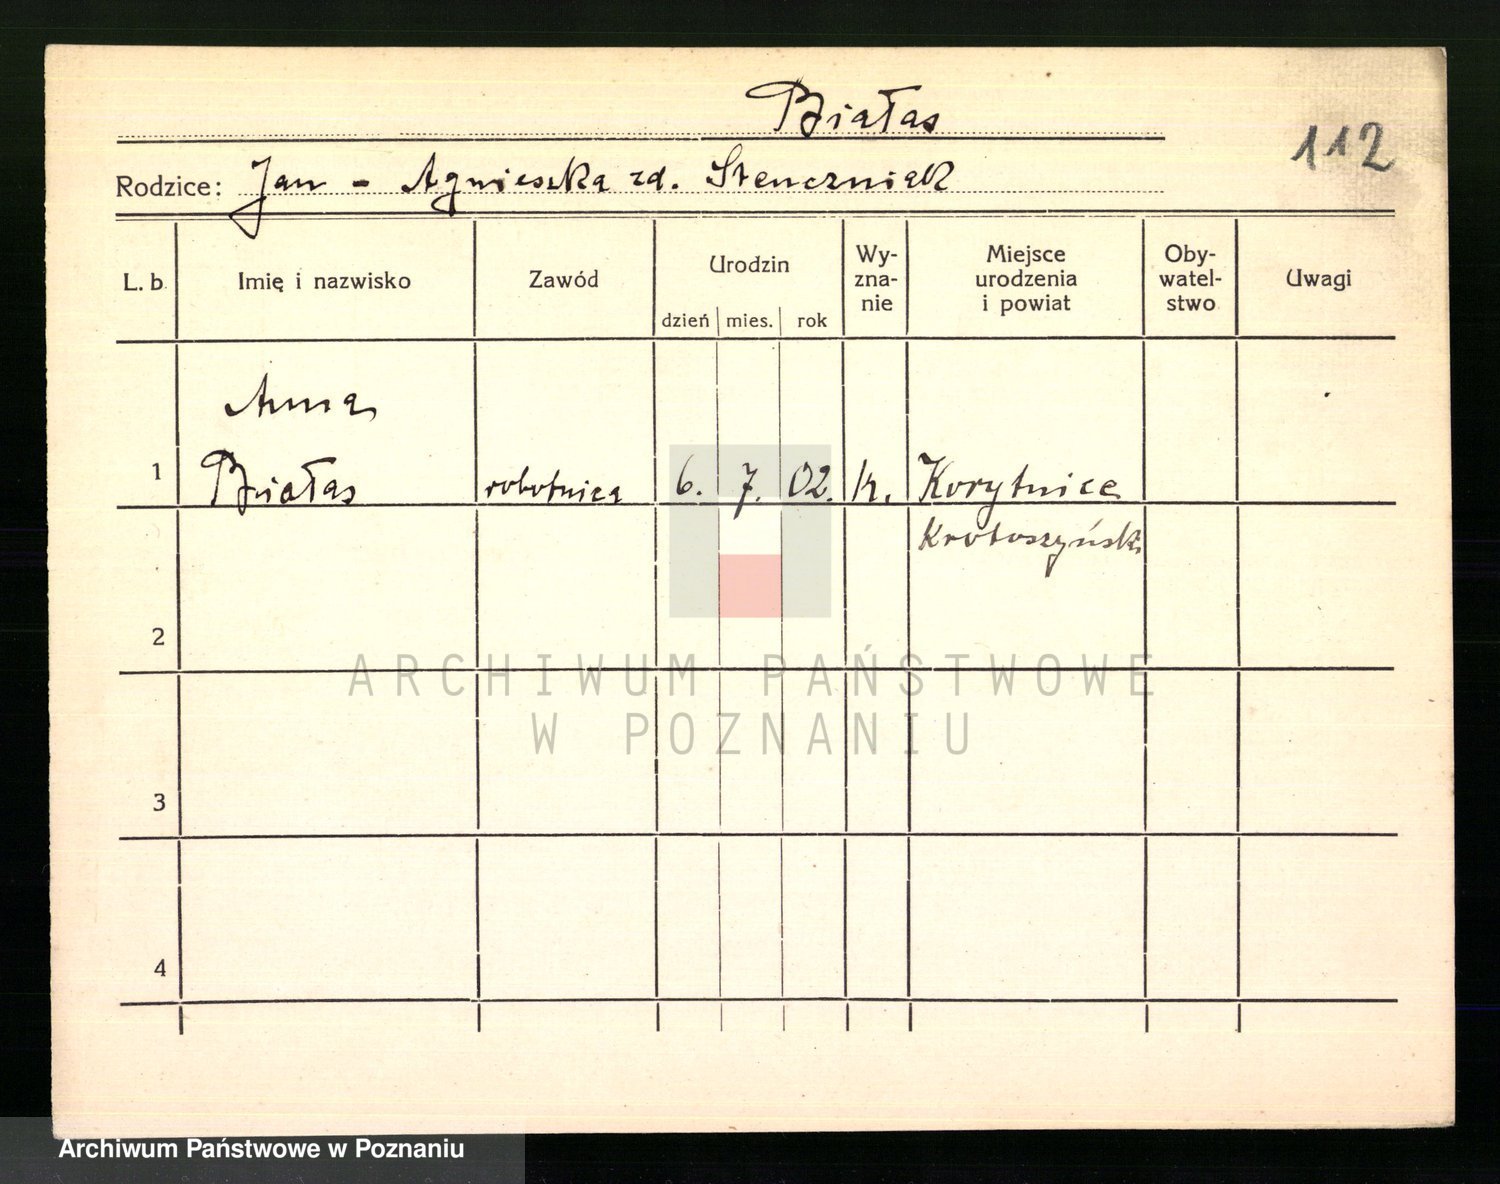 Białas
112
Rodzice: Jan - Agnieszka zd. Stenczniak
L. b. Imię i nazwisko Zawód Urodzin dzień mies. rok Wy-zna-nie Miejsce urodzenia i powiat Oby-watel-stwo Uwagi
Anna
1 Białas robotnica 6. 7. 02. k. Korytnice
Krotoszyńsk.
2
3
4
ARCHIWUM PAŃSTWOWE
W POZNANIU
Archiwum Państwowe w Poznaniu